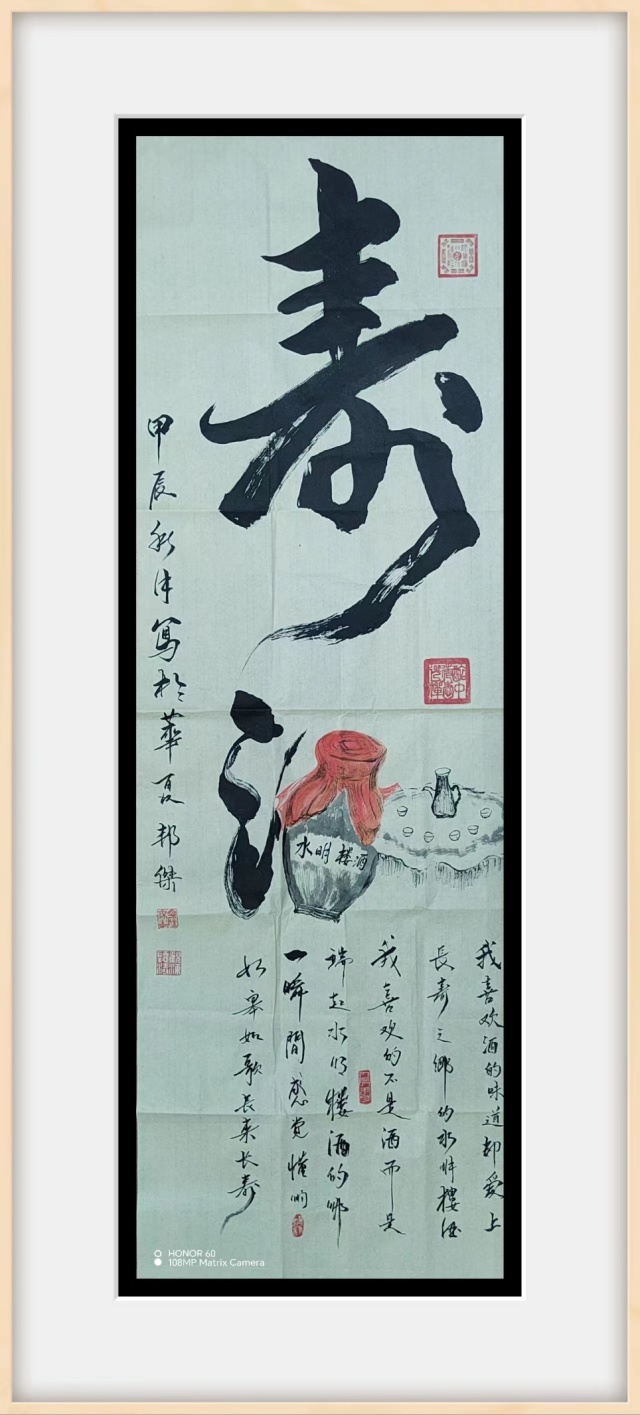 寿
酒
水明楼酒
我喜欢酒的味道却爱上
長寿之鄉的水明樓酒
我喜欢的不是酒而是
端起水明樓酒的那
一瞬間感觉
如寿如歌長来长寿
甲辰秋月寫於華夏邦傑
HONOR 60
108MP Matrix Camera